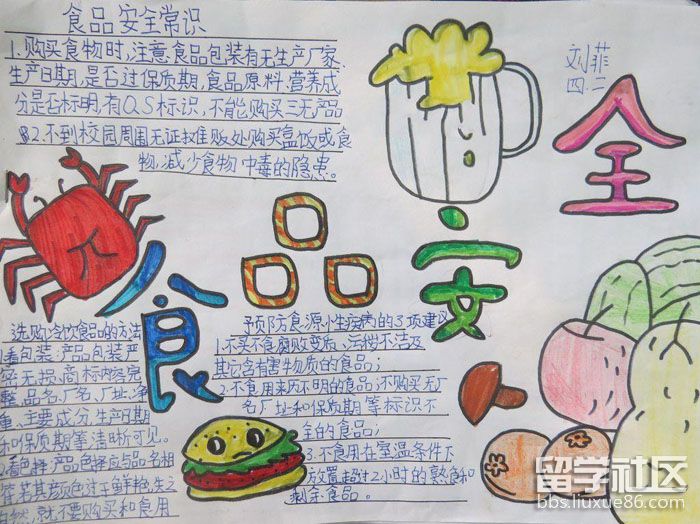 食品安全常识
1.购买食物时,注意食品包装有无生产厂家、
生产日期,是否过保质期,食品原料、营养成
分是否标明,有QS标识,不能购买三无产品
2.不到校园周围无证摊贩处购买盒饭或食
物,减少食物中毒的隐患。
刘菲
四.二
食品安全
选购冷饮食品的方法
1看包装:产品包装严
密无损,商标内容完
整,品名、厂名、厂址、净
重、主要成分、生产日期
和保质期等清晰可见。
2看色择:产品色择应与品名相
符,若其颜色过于鲜艳,失之
自然,就不要购买和食用
预防食源小性疾病的3项建议
1.不买不食腐败变质、污秽不洁及
其它含有害物质的食品;
2.不食用来历不明的食品;不购买无厂
名厂址和保质期等标识不
全的食品;
3.不食用在室温条件下
放置超过2小时的熟食和
剩余食品。
留学社区
bbs.liuxue86.com